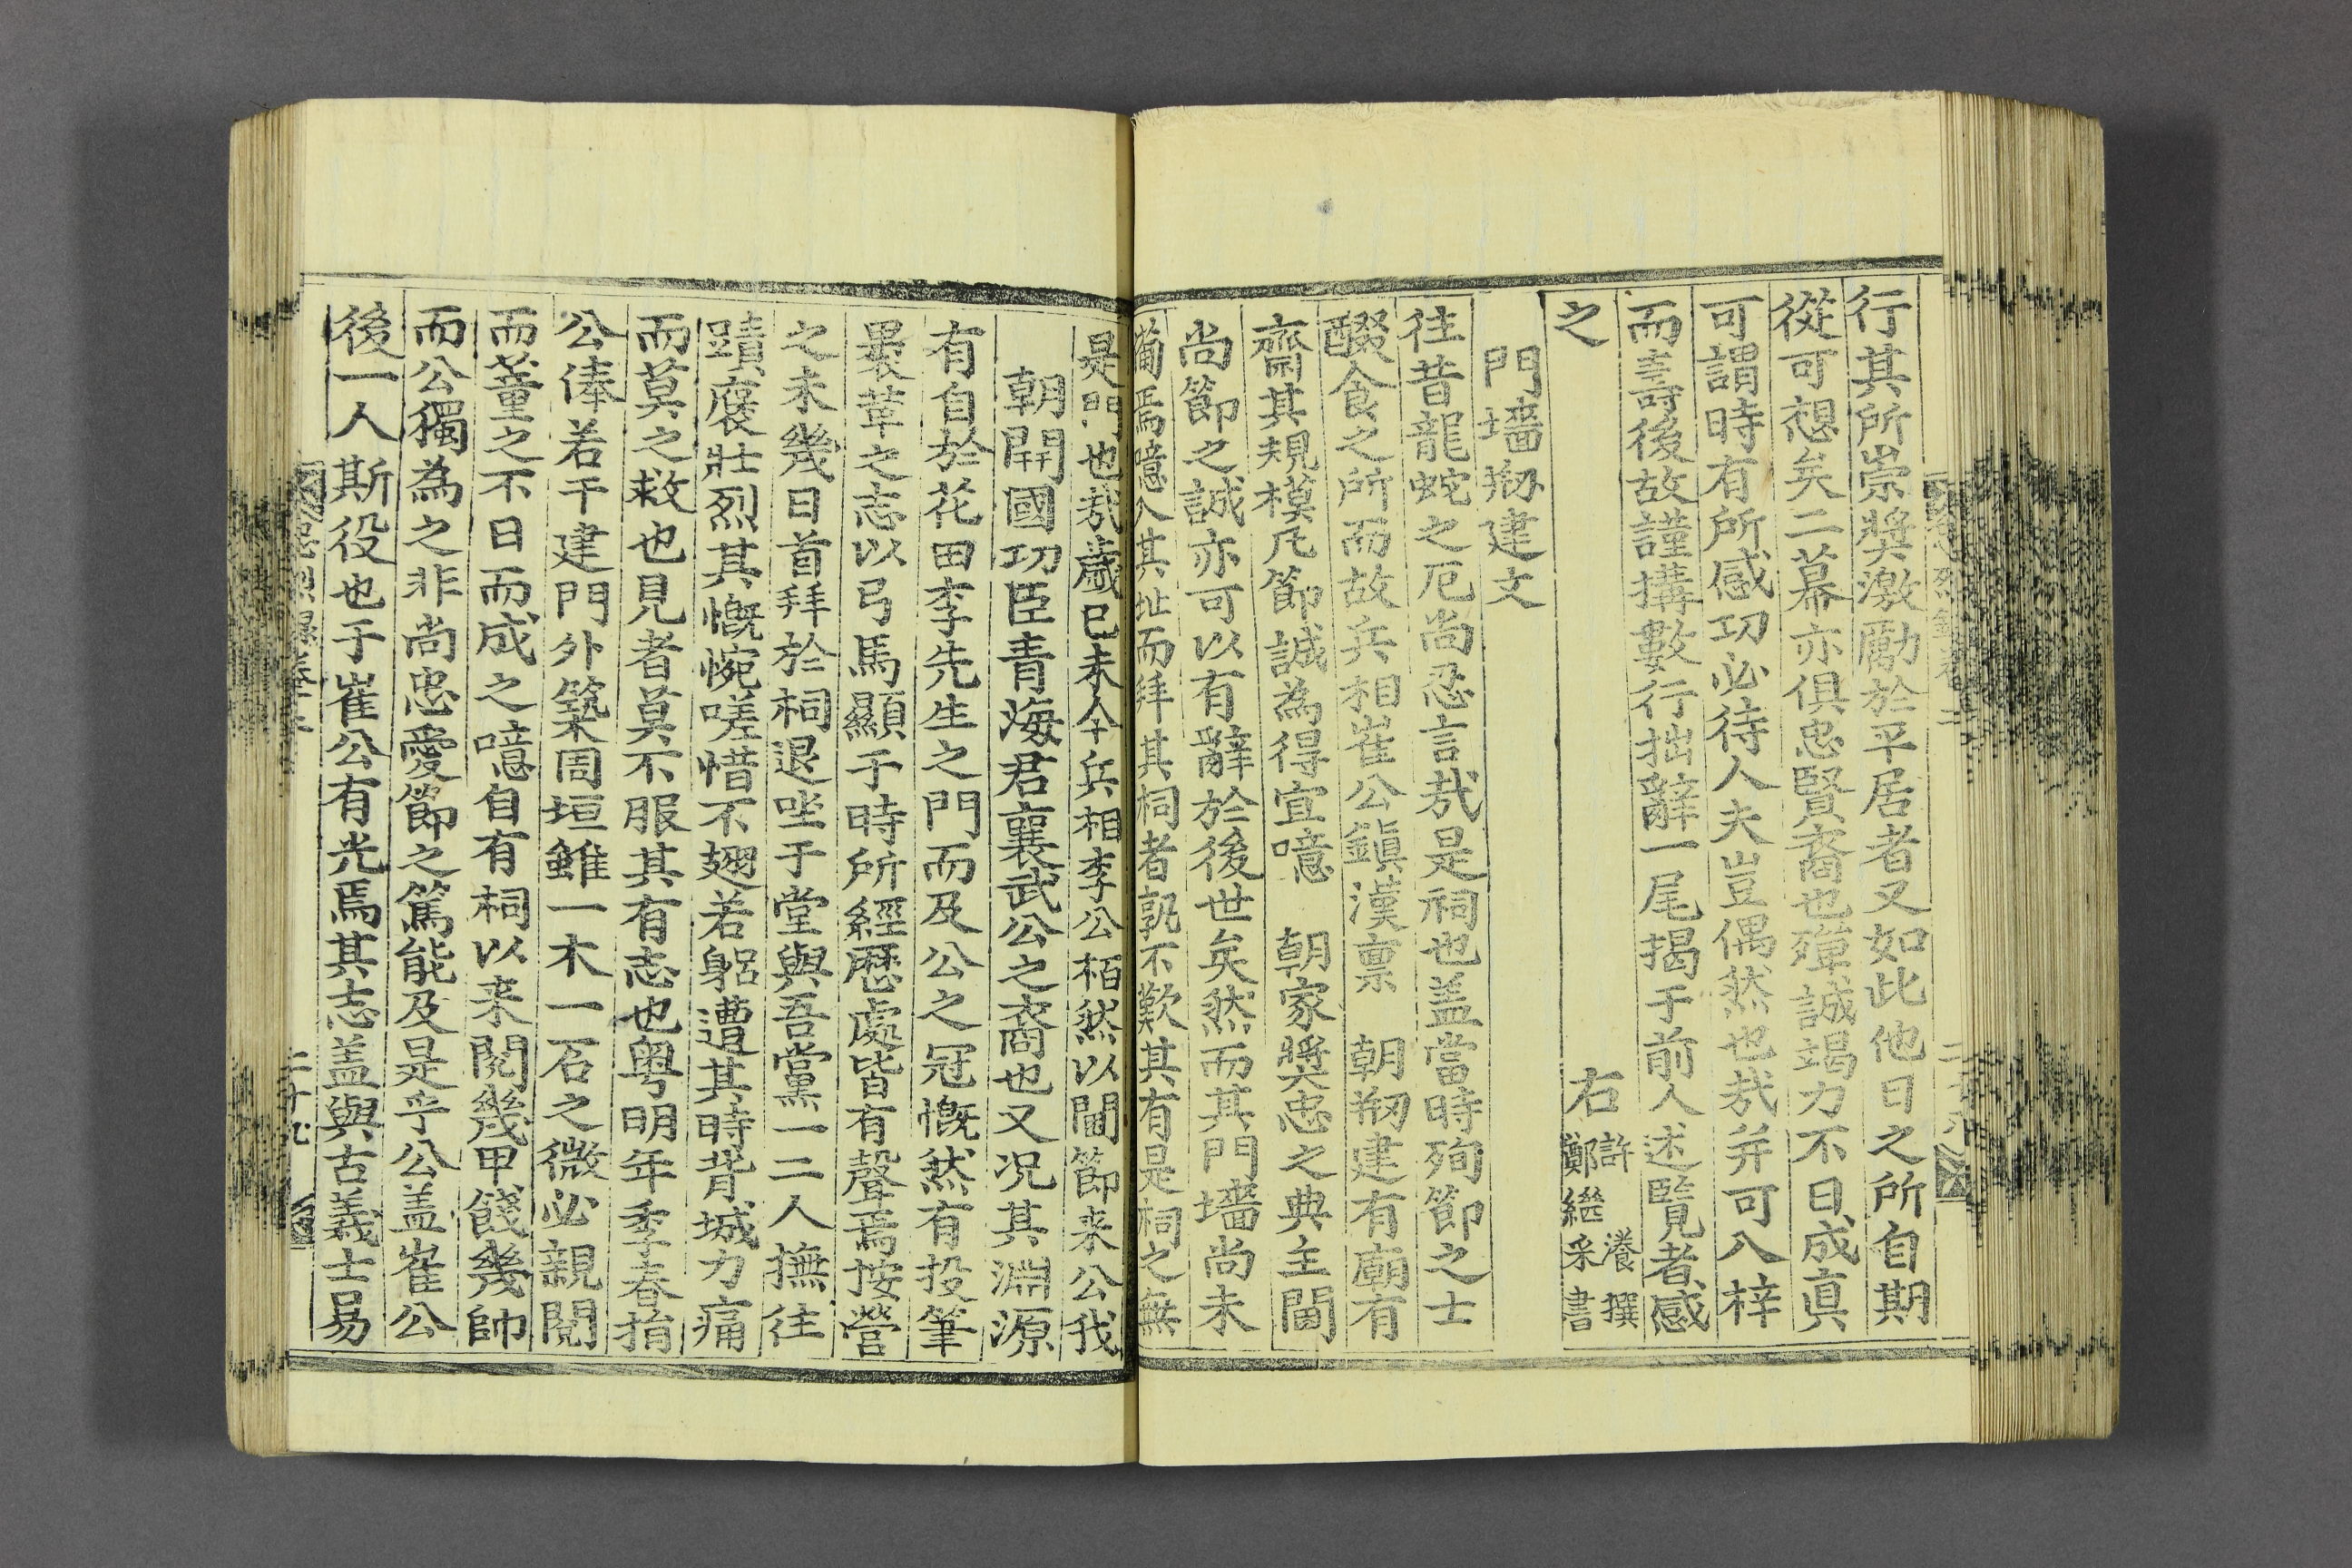 行其所崇奬激勵於平居者又如此他日之所自期
從可想矣二幕亦俱忠賢裔也殫誠竭力不日成眞
可謂時有所感功必待人夫豈偶然也哉幷可入梓
而壽後故謹搆數行拙辭一尾揭于前人述覽者感
之
右 許濷撰
鄭繼釆書
門墻刱建文
往昔龍蛇之厄尚忍言哉是祠也盖當時殉節之士
醊食之所而故兵相崔公鎭漢禀 朝刱建有廟有
齋其規模凡節誠為得宜噫 朝家奬忠之典主閫
尚節之誠亦可以有辭於後世矣然而其門墻尚未
備焉噫入其址而拜其祠者孰不歎其有是祠之無
是門也哉歲已未今兵相李公栢然以閫節来公我
朝開國功臣青海君襄武公之裔也又况其淵源
有自於花田李先生之門而及公之冠慨然有投筆
褁革之志以弓馬顯于時所經歷處皆有聲焉按營
之未幾日首拜於祠退坐于堂與吾黨一二人撫往
蹟褒壯烈其慨惋嗟惜不翅若躬遭其時背城力痛
而莫之救也見者莫不服其有志也粤明年季春捐
公俸若干建門外築周垣雖一木一石之微必親閱
而董之不日而成之噫自有祠以来閱幾甲餞幾帥
而公獨為之非尚忠愛節之篤能及是乎公盖崔公
後一人斯役也于崔公有光焉其志盖與古義士易